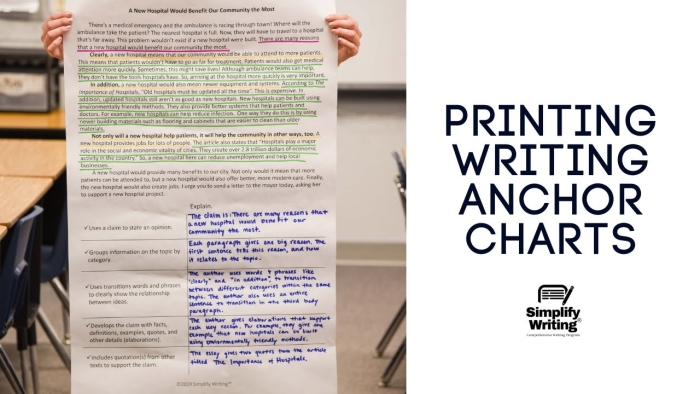 A New Hospital Would Benefit Our Community the Most
There's a medical emergency and the ambulance is racing through town! Where will the
ambulance take the patient? The nearest hospital is full. Now, they will have to travel to a hospital
that's far away. This problem wouldn't exist if a new hospital were built. There are many reasons
that a new hospital would benefit our community the most.
Clearly, a new hospital means that our community would be able to attend to more patients.
This means that patients wouldn't have to go as far for treatment. Patients would also get medical
attention more quickly. Sometimes, this might save lives! Although ambulance teams can help,
they don't have the tools hospitals have. So, arriving at the hospital more quickly is very important.
In addition, a new hospital would also mean newer equipment and systems. According to The
Importance of Hospitals, "Old hospitals must be updated all the time". This is expensive. In
addition, updated hospitals still aren't as good as new hospitals. New hospitals can be built using
environmentally friendly methods. They also provide better systems that help patients and
doctors. For example, new hospitals can help reduce infection. One way they do this is by using
newer building materials such as flooring and cabinets that are easier to clean than older
materials.
Not only will a new hospital help patients, it will help the community in other ways, too. A
new hospital provides jobs for lots of people. The article also states that "Hospitals play a major
role in the social and economic vitality of cities. They create over 2.8 trillion dollars of economic
activity in the country." So, a new hospital here can reduce unemployment and help local
businesses.
A new hospital would provide many benefits to our city. Not only would it mean that more
patients can be attended to, but a new hospital would also offer better, more modern care. Finally,
the new hospital would also create jobs. I urge you to send a letter to the mayor today, asking her
to support a new hospital project.
Explain.
✓Uses a claim to state an opinion.
The claim is: There are many reasons that
a new hospital would benefit our
community the most.
✓Groups information on the topic by
category.
Each paragraph gives one big reason. The
first sentence tells this reason, and how
it relates to the topic.
✓Uses transitions words and phrases
to clearly show the relationship
between ideas.
The author uses words & phrases like
"clearly" and "in addition" to transition
between different categories within the same
topic. The author also uses an entire
sentence to transition in the third body
paragraph.
✓Develops the claim with facts,
definitions, examples, quotes, and
other details (elaborations).
The author gives elaborations that support
each very reason. For example, they give one
example that new hospitals can be built
using environmentally friendly methods.
✓Includes quotation(s) from other
texts to support the claim.
The essay gives two quotes from the article
titled The Importance of Hospitals.
©2019 Simplify Writing™
PRINTING
WRITING
ANCHOR
CHARTS
Simplify
Writing®
Comprehensive Writing Program